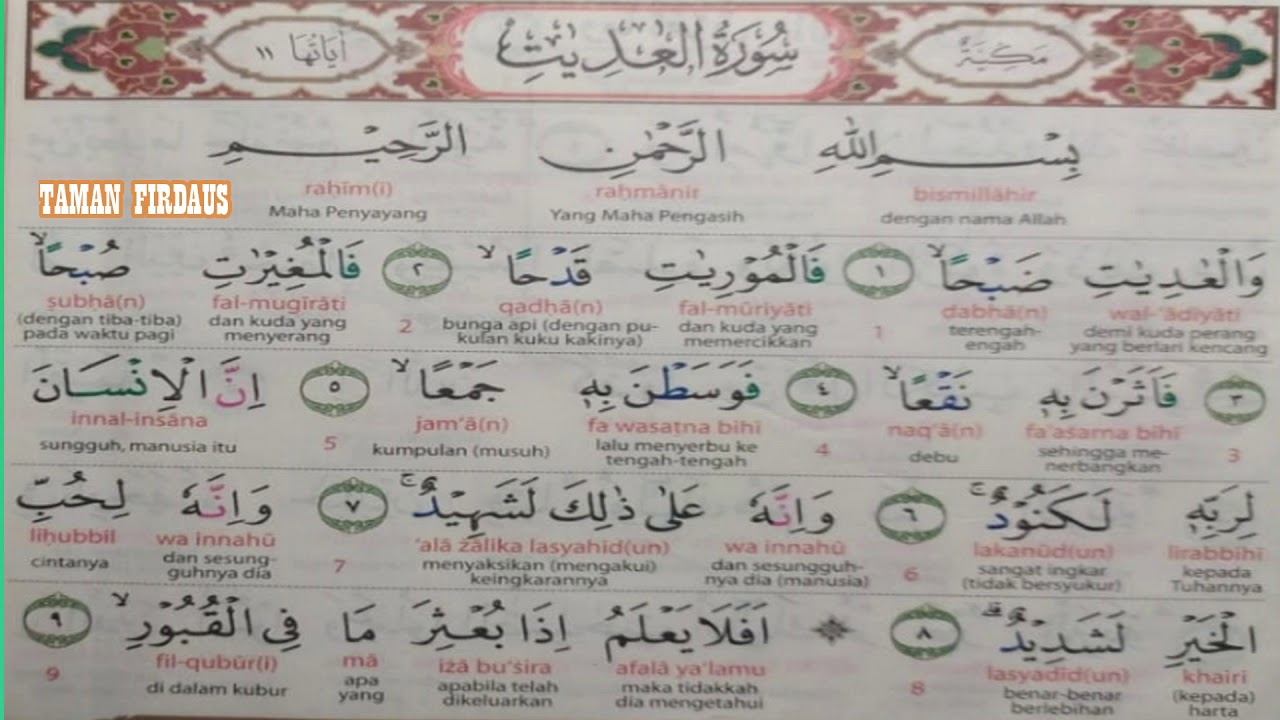 سُوْرَةُ الْعٰدِيٰتِ
مَكِّيَّةٌ
اٰيَاتُهَا ١١
TAMAN FIRDAUS
بِسْمِ اللّٰهِ الرَّحْمٰنِ الرَّحِيْمِ
bismillāhir raḥmānir raḥīm(i)
dengan nama Allah Yang Maha Pengasih Maha Penyayang
وَالْعٰدِيٰتِ ضَبْحًاۙ ١ فَالْمُوْرِيٰتِ قَدْحًاۙ ٢ فَالْمُغِيْرٰتِ صُبْحًاۙ
wal-‘ādiyāti ḍabḥā(n) fal-mūriyāti qadḥā(n) fal-mugīrāti ṣubḥā(n)
demi kuda perang yang berlari kencang terengah-engah 1 dan kuda yang memercikkan bunga api (dengan pukulan kuku kakinya) 2 dan kuda yang menyerang (dengan tiba-tiba) pada waktu pagi
٣ فَاَثَرْنَ بِهٖ نَقْعًاۙ ٤ فَوَسَطْنَ بِهٖ جَمْعًاۙ ٥ اِنَّ الْاِنْسَانَ
fa'aṡarna bihī naq‘ā(n) fa wasaṭna bihī jam‘ā(n) innal-insāna
3 sehingga menerbangkan debu 4 lalu menyerbu ke tengah-tengah kumpulan (musuh) 5 sungguh, manusia itu
لِرَبِّهٖ لَكَنُوْدٌۚ ٦ وَاِنَّهٗ عَلٰى ذٰلِكَ لَشَهِيْدٌۚ ٧ وَاِنَّهٗ لِحُبِّ
lirabbihī lakanūd(un) wa innahū ‘alā żālika lasyahīd(un) wa innahū liḥubbil
kepada Tuhannya sangat ingkar (tidak bersyukur) 6 dan sesungguhnya dia (manusia) menyaksikan (mengakui) keingkarannya 7 dan sesungguhnya dia cintanya
الْخَيْرِ لَشَدِيْدٌۗ ٨ ۞ اَفَلَا يَعْلَمُ اِذَا بُعْثِرَ مَا فِى الْقُبُوْرِۙ ٩
khairi lasyadīd(un) afalā ya‘lamu iżā bu‘ṡira mā fil-qubūr(i)
(kepada) harta benar-benar berlebihan 8 maka tidakkah dia mengetahui apabila telah dikeluarkan apa yang di dalam kubur 9